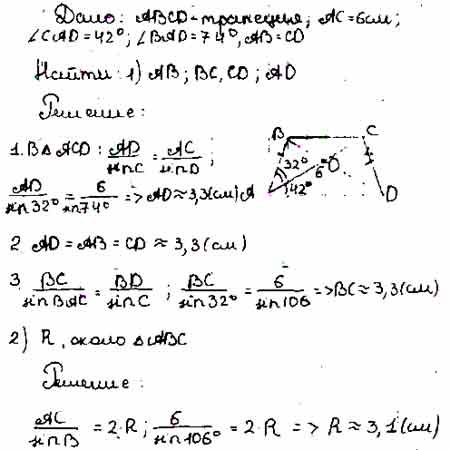 Дано: ABCD - трапеция; AC=6см;
∠CAD=42°; ∠BAD=74°, AB=CD
Найти: 1) AB; BC, CD; AD
Решение:
1. В △ ACD: AD/sin C = AC/sin D;
AD/sin 32° = 6/sin 74° => AD ≈ 3,3(см)
B C
32° O
6
A 42° D
2 AD = AB = CD ≈ 3,3(см)
3. BC/sin BAC = BD/sin C; BC/sin 32° = 6/sin 106 => BC ≈ 3,3(см)
2) R, около △ABC
Решение:
AC/sin B = 2·R; 6/sin 106° = 2·R => R ≈ 3,1(см)